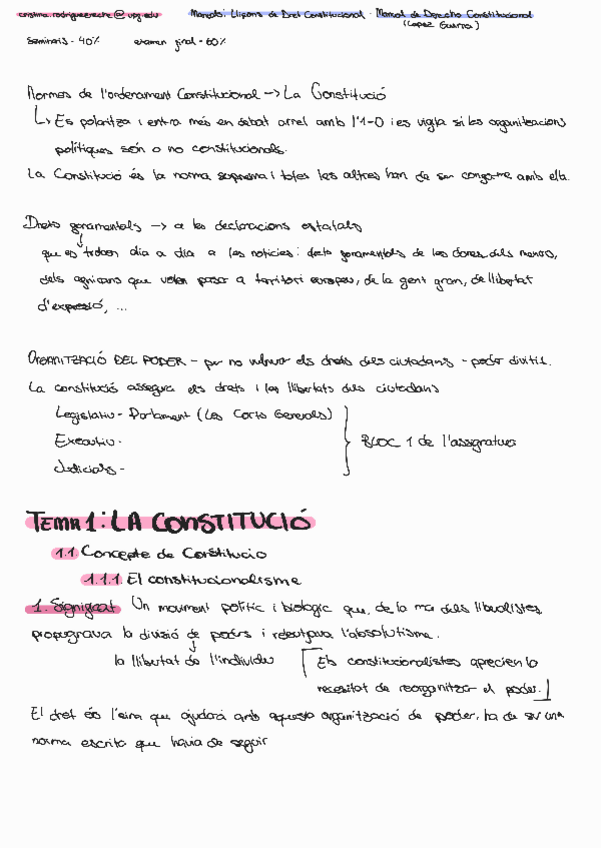 cristina.rodriguezreche@upg.edu Manuals: Lliçons de Dret Constitucional - Manual de Derecho Constitucional
(Lopez Guerra)
Seminaris - 40% examen final - 60%
Normes de l'ordenament Constitucional -> La Constitució
↳ Es polaritza i entra més en debat arrel amb l'1-O i es vigila si les organitzacions
polítiques són o no constitucionals.
La Constitució és la norma suprema i totes les altres han de ser conforme amb ella.
Drets fonamentals -> a les declaracions estatals
que es troben dia a dia a les noticies: drets fonamentals de les dones, dels menors,
dels africans que volen passar a territori europeu, de la gent gran, de llibertat
d'expressió, ...
ORGANITZACIÓ DEL PODER - per no vulnerar els drets dels ciutadans - poder dividit.
La constitució assegura els drets i les llibertats dels ciutadans
Legislatiu - Parlament (Les Corts Generals)
Executiu - BLOC 1 de l'assignatura
Judicials -
TEMA 1: LA CONSTITUCIÓ
1.1 Concepte de Constitucio
1.1.1 El constitucionalisme
1. Significat Un moviment polític i que, de la ma dels liberalistes,
propugnava la divisió de poders i rebutjava l'absolutisme.
la llibertat de l'individu Els constitucionalistes aprecien la
necessitat de reorganitzar el poder.
El dret és l'eina que ajudarà amb aquesta organització de poder, ha de ser una
norma escrita que havia de seguir